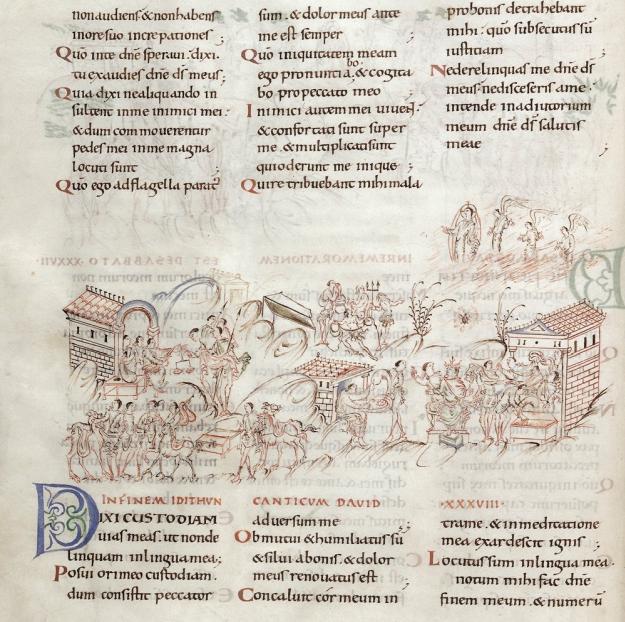 non audiens & non habens
in ore suo increpationes ;
Quō in te dn̄e speraui . dixi .
tu exaudies dn̄e dſ meus ;
Quia dixi ne aliquando in
sultent in me inimici mei .
& dum commouerentur
pedes mei in me magna
locuti sunt ;
Quō ego ad flagella parat᷒
sum . & dolor meus ante
me est semper
Quō iniquitatem meam
bo
ego pronuntia & cogita
bo pro peccato meo ;
Inimici autem mei uiuen̄t .
& confortati sunt super
me . & multiplicati sunt
qui oderunt me inique ;
Qui retribuebant mihi mala
pro bonis detrahebant
mihi . quō subsecutus sū
iustitiam ;
Ne derelinquas me dn̄e dſ
meus ne discesseris a me .
intende in adiutorium
meum dn̄e dſ salutis
meae ;
IN FINEM IDITHVN CANTICVM DAVID XXXVIII
DIXI CUSTODIAM
uias meas . ut non de
linquam in lingua mea ;
Posui ori meo custodiam .
dum consistit peccator
aduersum me ;
Obmutui & humiliatus sū
& silui a bonis . & dolor
meus renouatus est ;
Concaluit cor meum in
tra me . & in meditatione
mea exardescit ignis ;
Locutus sum in lingua mea .
notum mihi fac dn̄e
finem meum . & numerū